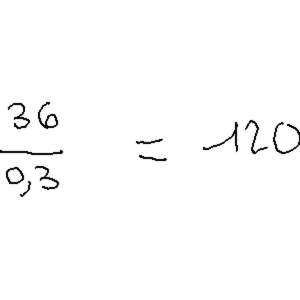 36/0,3 = 120